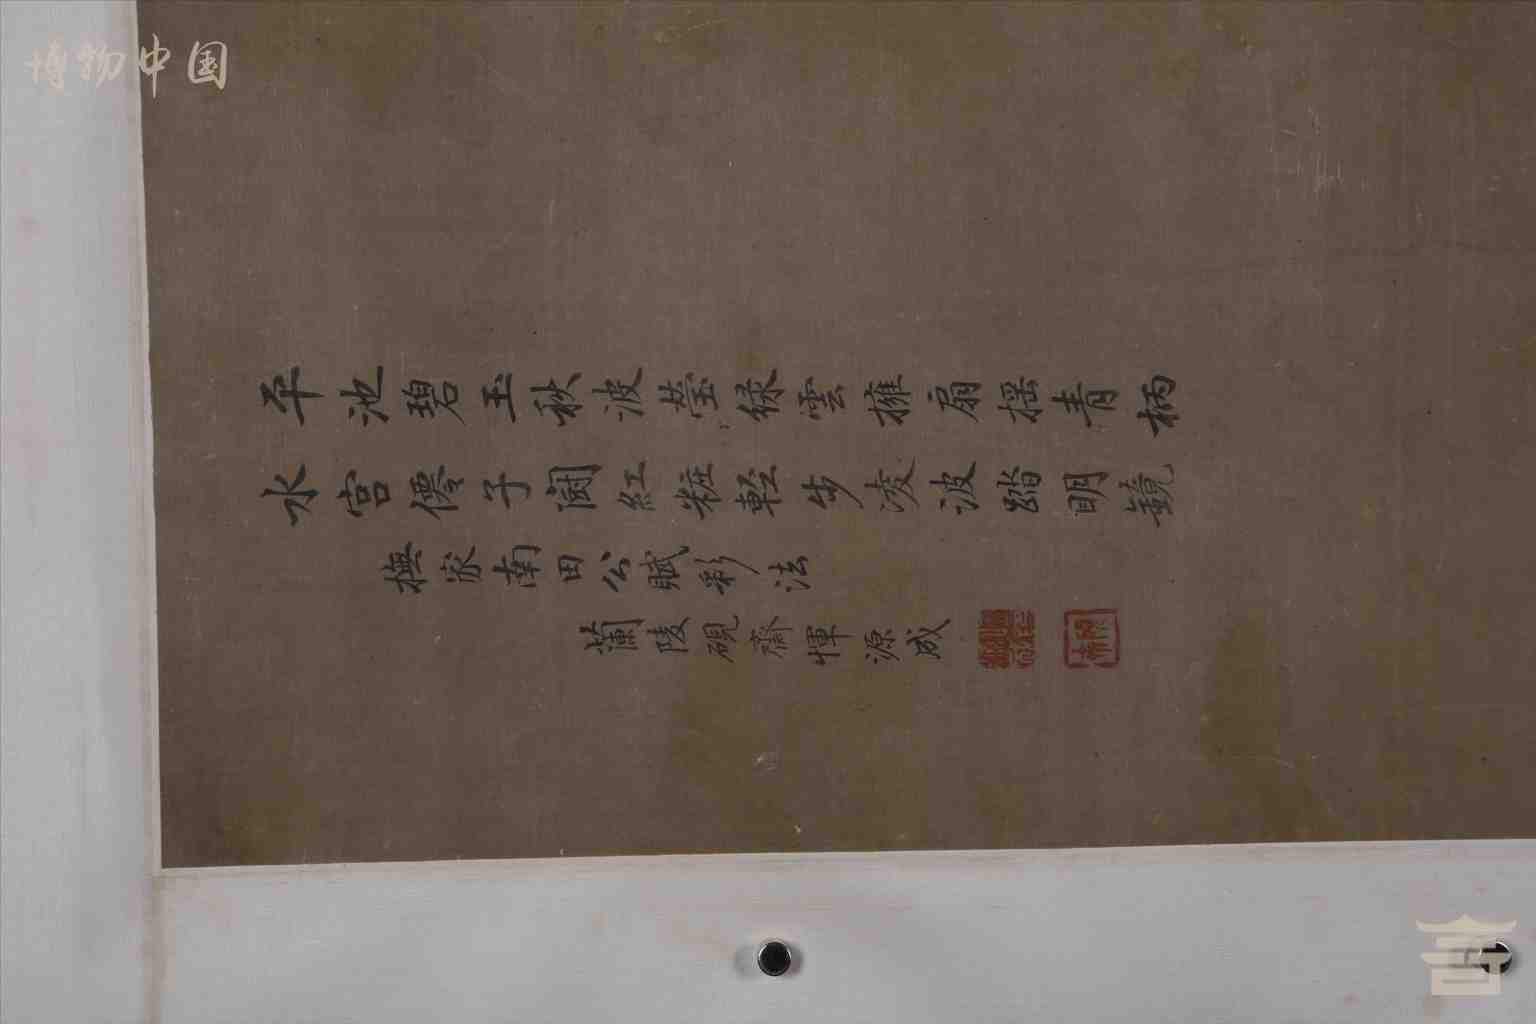 博物中国
平池碧玉秋波莹綠雲擁扇摇青柄
水宫僊子鬪紅粧輕步凌波踏明鏡
橅家南田公賦彩法
蘭陵硯齋惲源成